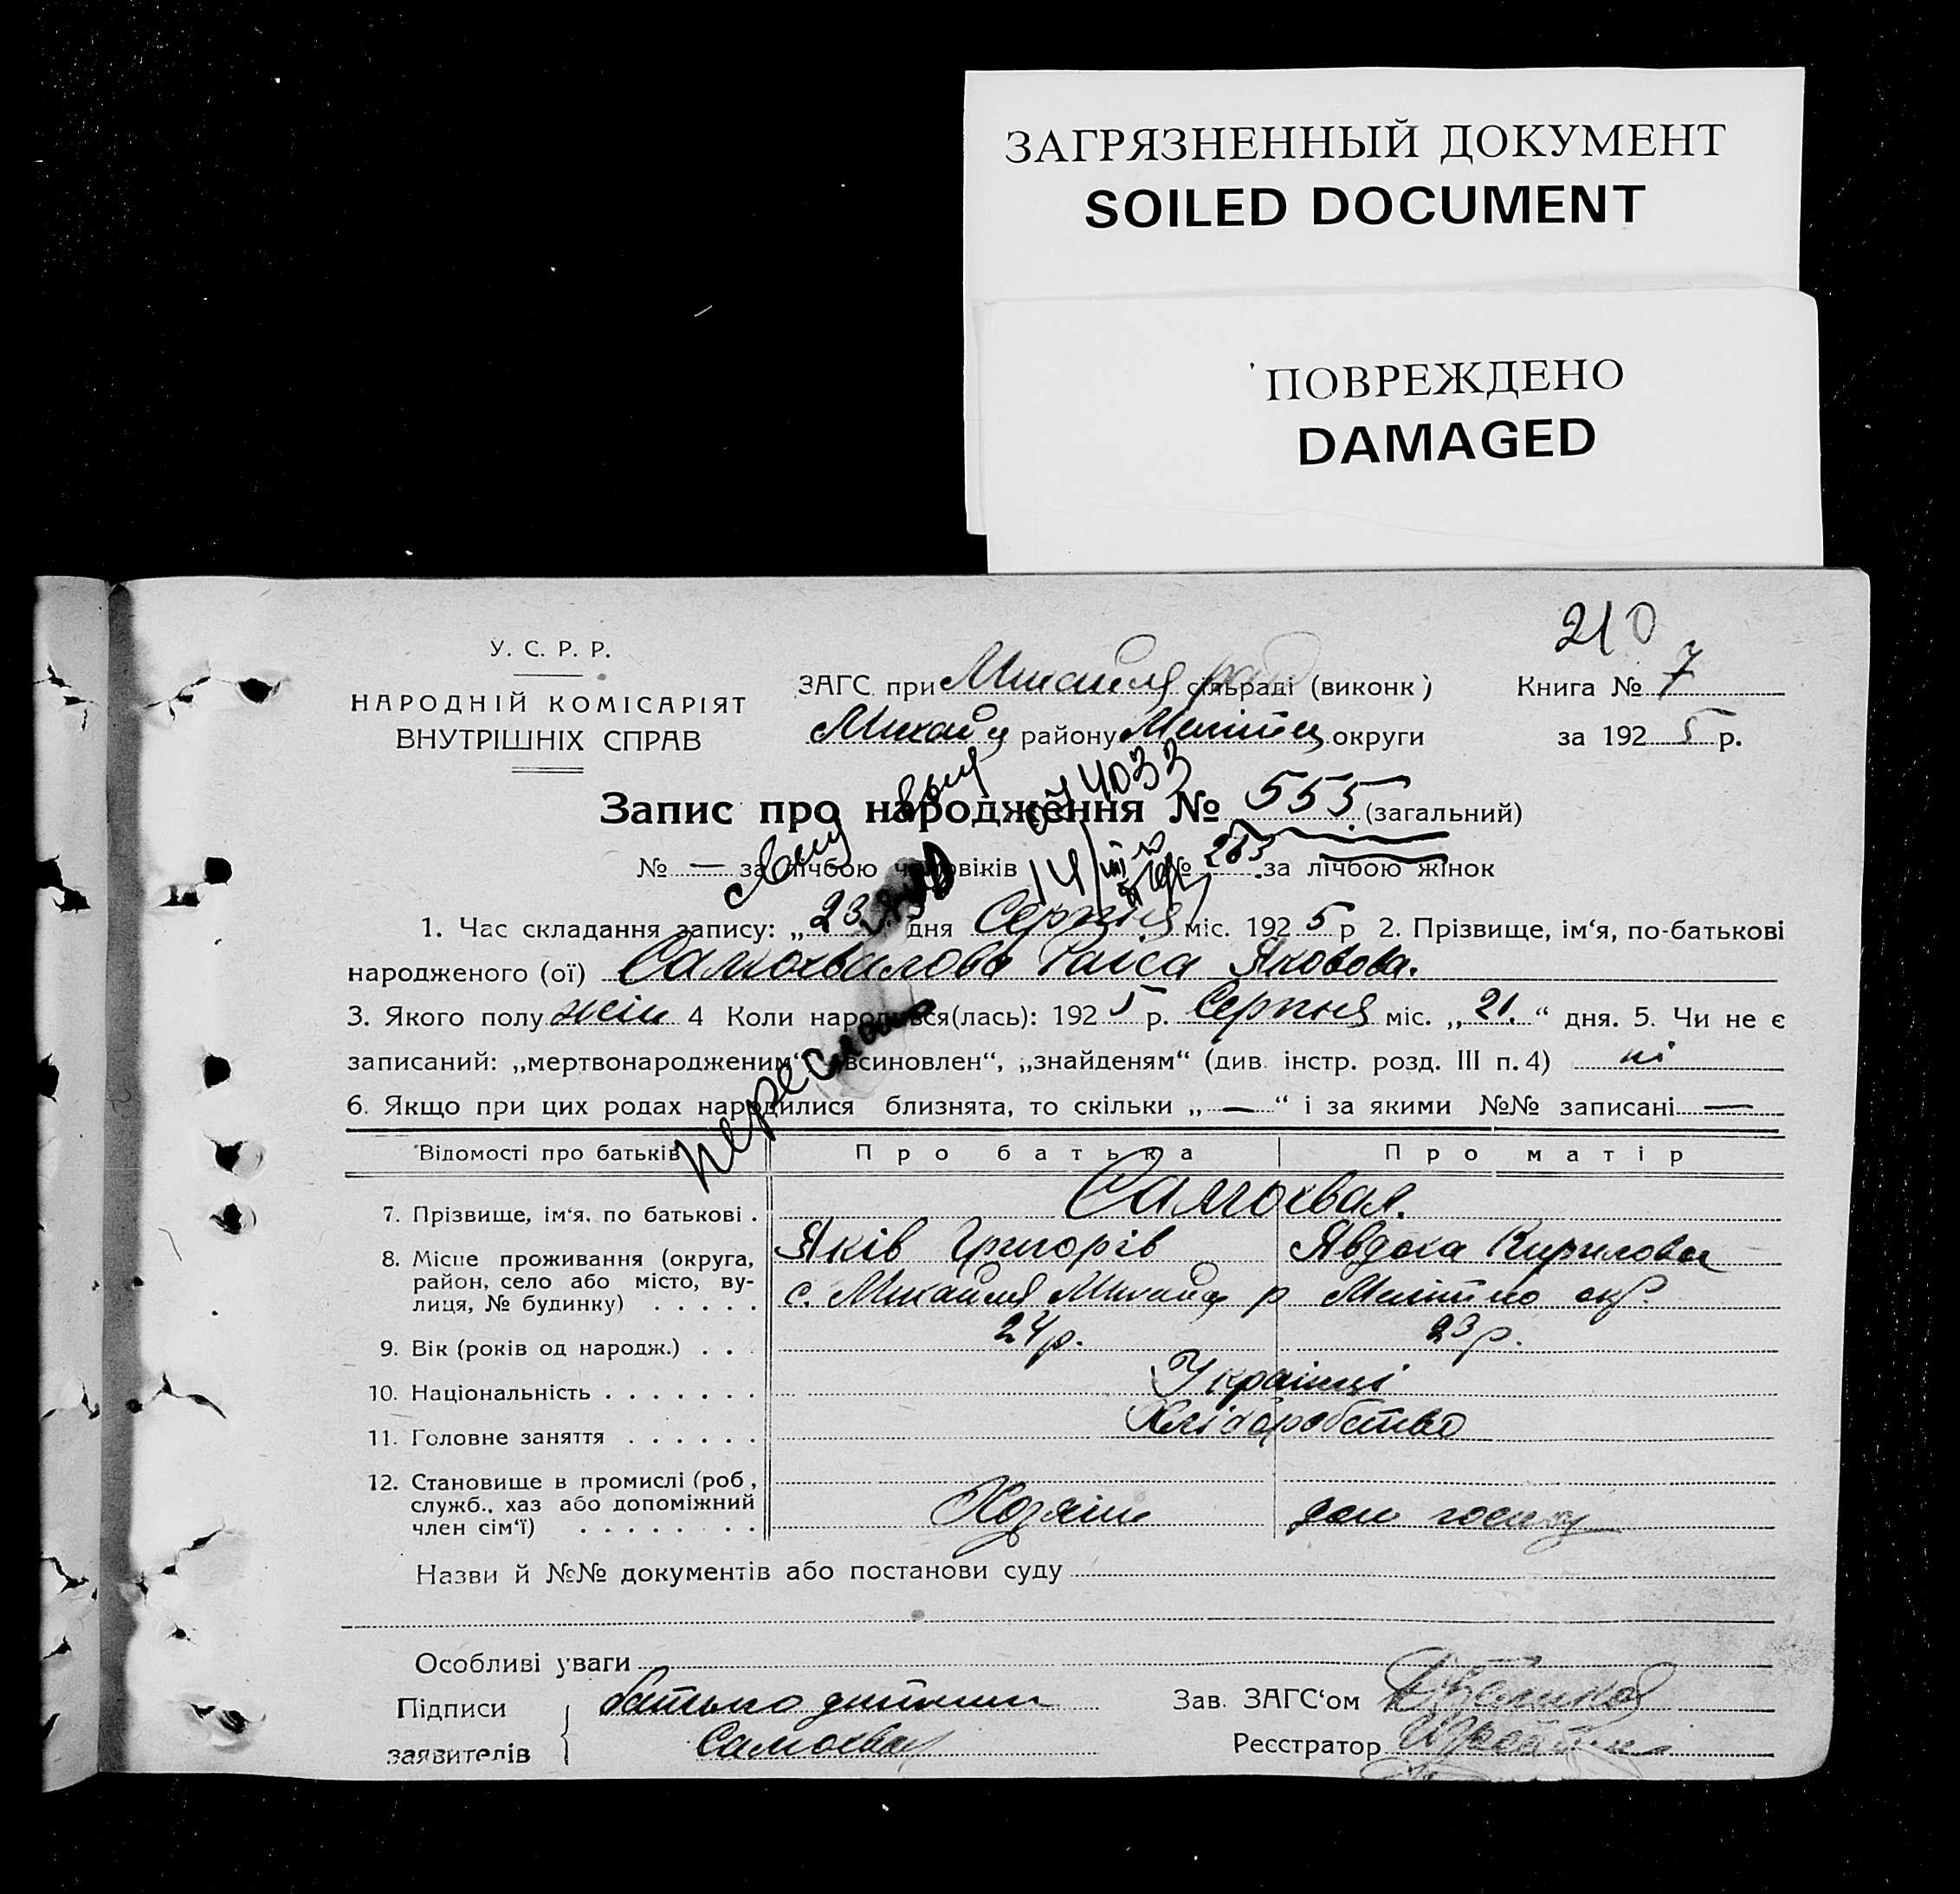 ЗАГРЯЗНЕННЫЙ ДОКУМЕНТ
SOILED DOCUMENT
ПОВРЕЖДЕНО
DAMAGED
210
У. С. Р. Р.
НАРОДНІЙ КОМІСАРІЯТ
ВНУТРІШНІХ СПРАВ
ЗАГС при Михайл сільраді (виконк)
Михай району Меліт округи
Книга № 7
за 1925 р.
Запис про народження № 555 (загальний)
№ — за лічбою чоловіків № 283 за лічбою жінок
1. Час складання запису: „23 дня Серпня міс. 1925 р 2. Прізвище, ім‘я, по-батькові
народженого (ої) Самохвалова Раіса Яковова.
3. Якого полу жін 4 Коли народився(лась): 1925 р. Серпня міс. „21.“ дня. 5. Чи не є
записаний: „мертвонародженим“ „всиновлен“, „знайденям“ (див. інстр. розд. III п. 4) ні
6. Якщо при цих родах народилися близнята, то скільки „—“ і за якими №№ записані —
Відомості про батьків
Про батька
Про матір
7. Прізвище, ім‘я, по батькові .
Самохвал.
Яків Григорів
Явдоха Кирилова
8. Місце проживання (округа,
район, село або місто, ву-
лиця, № будинку) . . . . .
с. Михайля Михай р Меліт окр.
9. Вік (років од народж.) . . .
24 р.
23 р.
10. Національність . . . . . . .
Українці
11. Головне заняття . . . . . .
Хліборобство
12. Становище в промислі (роб,
служб., хаз або допоміжний
член сім‘ї) . . . . . . . .
Хозяїн
дом госп
Назви й №№ документів або постанови суду
Особливі уваги
Підписи
заявителів
батько дитини
Самохвал
Зав. ЗАГС‘ом
Реєстратор
074033